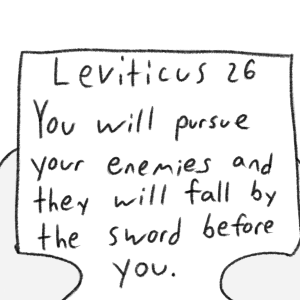 Leviticus 26
You will pursue
your enemies and
they will fall by
the sword before
you.